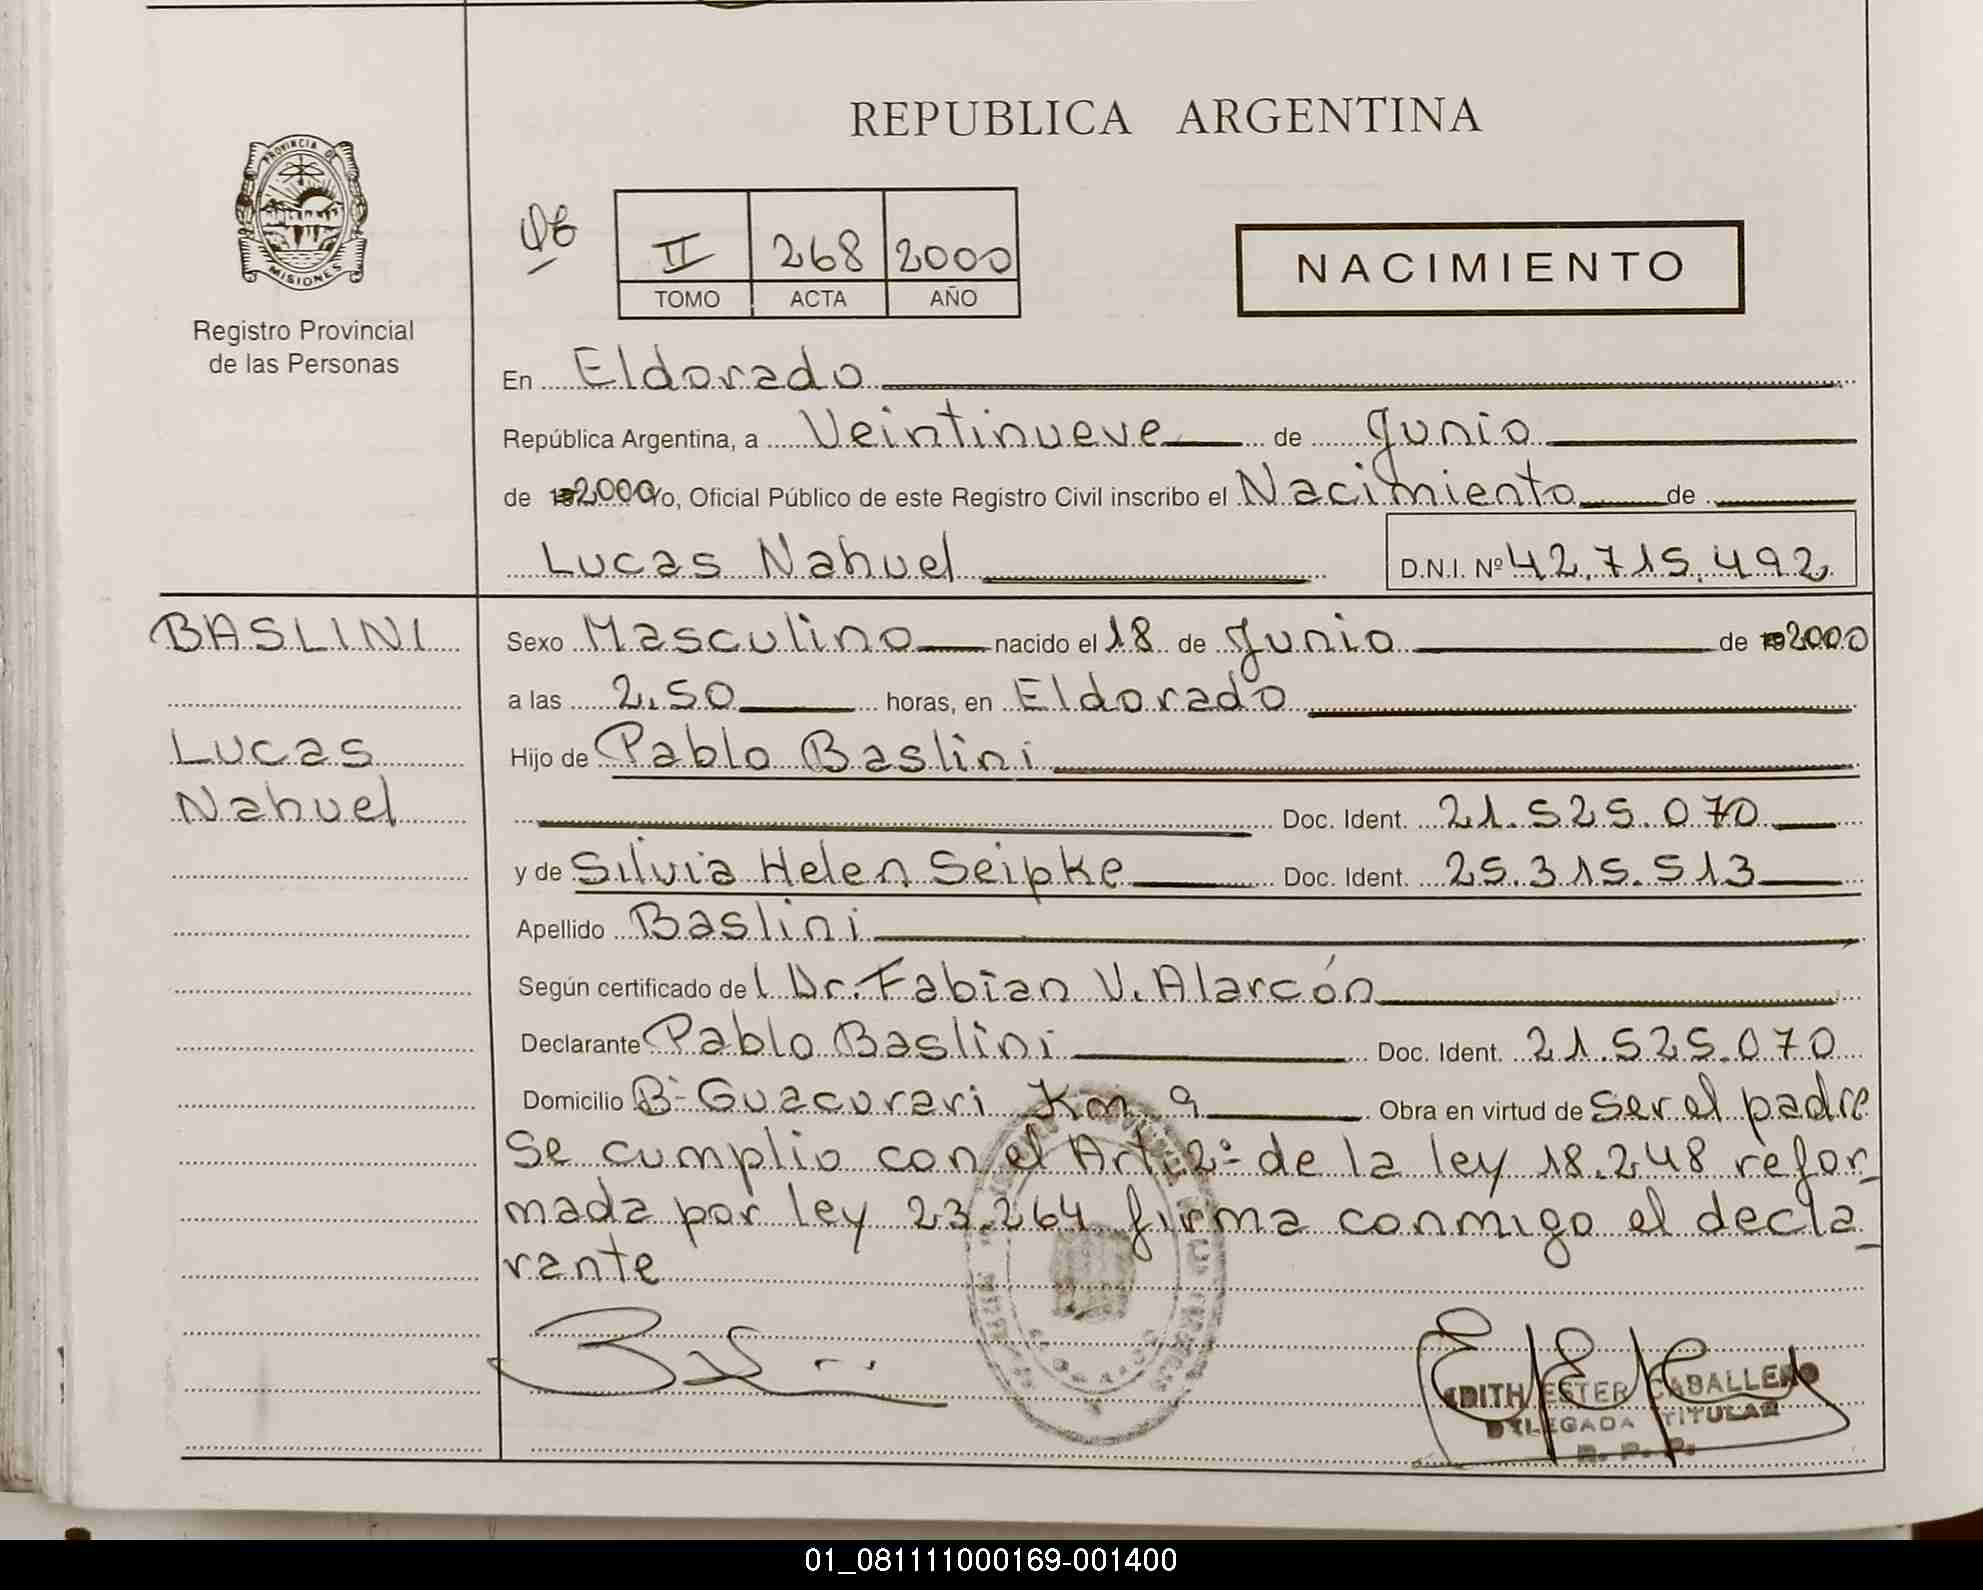 REPUBLICA ARGENTINA
PROVINCIA DE
MISIONES
Registro Provincial
de las Personas
II 268 2000
TOMO ACTA AÑO
NACIMIENTO
En Eldorado
República Argentina, a Veintinueve de Junio
de 2000 Yo, Oficial Público de este Registro Civil inscribo el Nacimiento de
Lucas Nahuel D.N.I. Nº 42.715.492
BASLINI
Lucas
Nahuel
Sexo Masculino nacido el 18 de Junio de 2000
a las 2.50 horas, en Eldorado
Hijo de Pablo Baslini
Doc. Ident. 21.525.070
y de Silvia Helen Seipke Doc. Ident. 25.315.513
Apellido Baslini
Según certificado del Dr. Fabian V. Alarcón
Declarante Pablo Baslini Doc. Ident. 21.525.070
Domicilio Bº Guacurari Km 9 Obra en virtud de ser el padre
Se cumplio con el Art. 2º de la ley 18.248 refor_
mada por ley 23.264 firma conmigo el decla_
rante
EDITH ESTER CABALLERO
DELEGADA TITULAR
R. P. P.
01_081111000169-001400